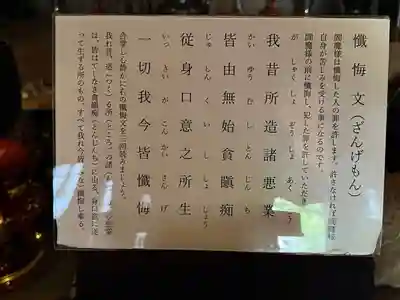 懺悔文(さんげもん)
閻魔様は懺悔した人の罪を許します。許さなければ閻魔様
自身が苦しみを受ける事になるのです。
閻魔様の前に懺悔し、犯した罪を許していただき
がしゃくしょぞうしょあくごう
我昔所造諸悪業
かいゆうむしとんじんち
皆由無始貪瞋痴
じゅうしんくいししょしょう
従身口意之所生
いっさいがこんかいさんげ
一切我今皆懺悔
合掌し心静かに右の懺悔文を三回読みましょう。
我れ昔、造(つく)る所(ところ)の諸
は、皆はてしなき貪瞋痴(とんじんち)に由る、身口意に従
って生ずる所のもの、すべて我れ今皆懺悔し奉る。